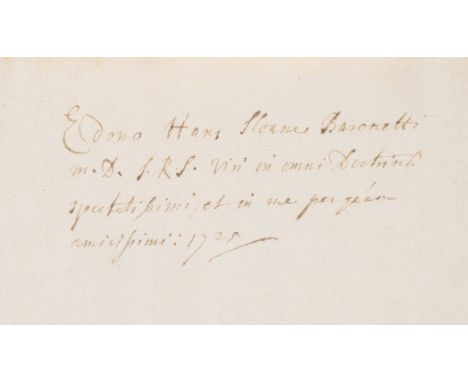 E dono Hans Sloane Baronetti
M. D. S. R. S. Viri in omni Doctrinâ
spectatissimi, et in me
amicissimi: 1725